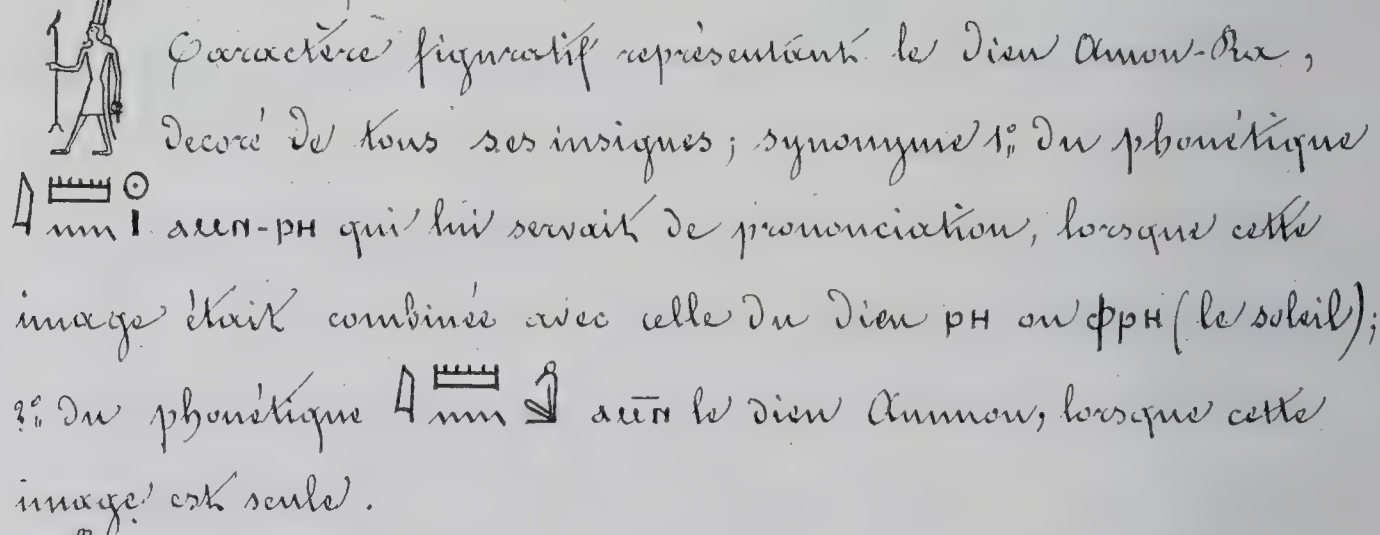 Caractère figuratif représentant le Dieu Amon-Ra,
décoré de tous ses insignes; synonyme 1º du phonétique
𓇋𓏠𓈖𓇳𓏤 ⲁⲙⲛ-ⲣⲏ qui lui servait de prononciation, lorsque cette
image était combinée avec celle du Dieu ⲣⲏ ou ⲫⲣⲏ (le soleil);
2º du phonétique 𓇋𓏠𓈖 ⲁⲙ̅ⲛ̅ le dieu Ammon, lorsque cette
image est seule.